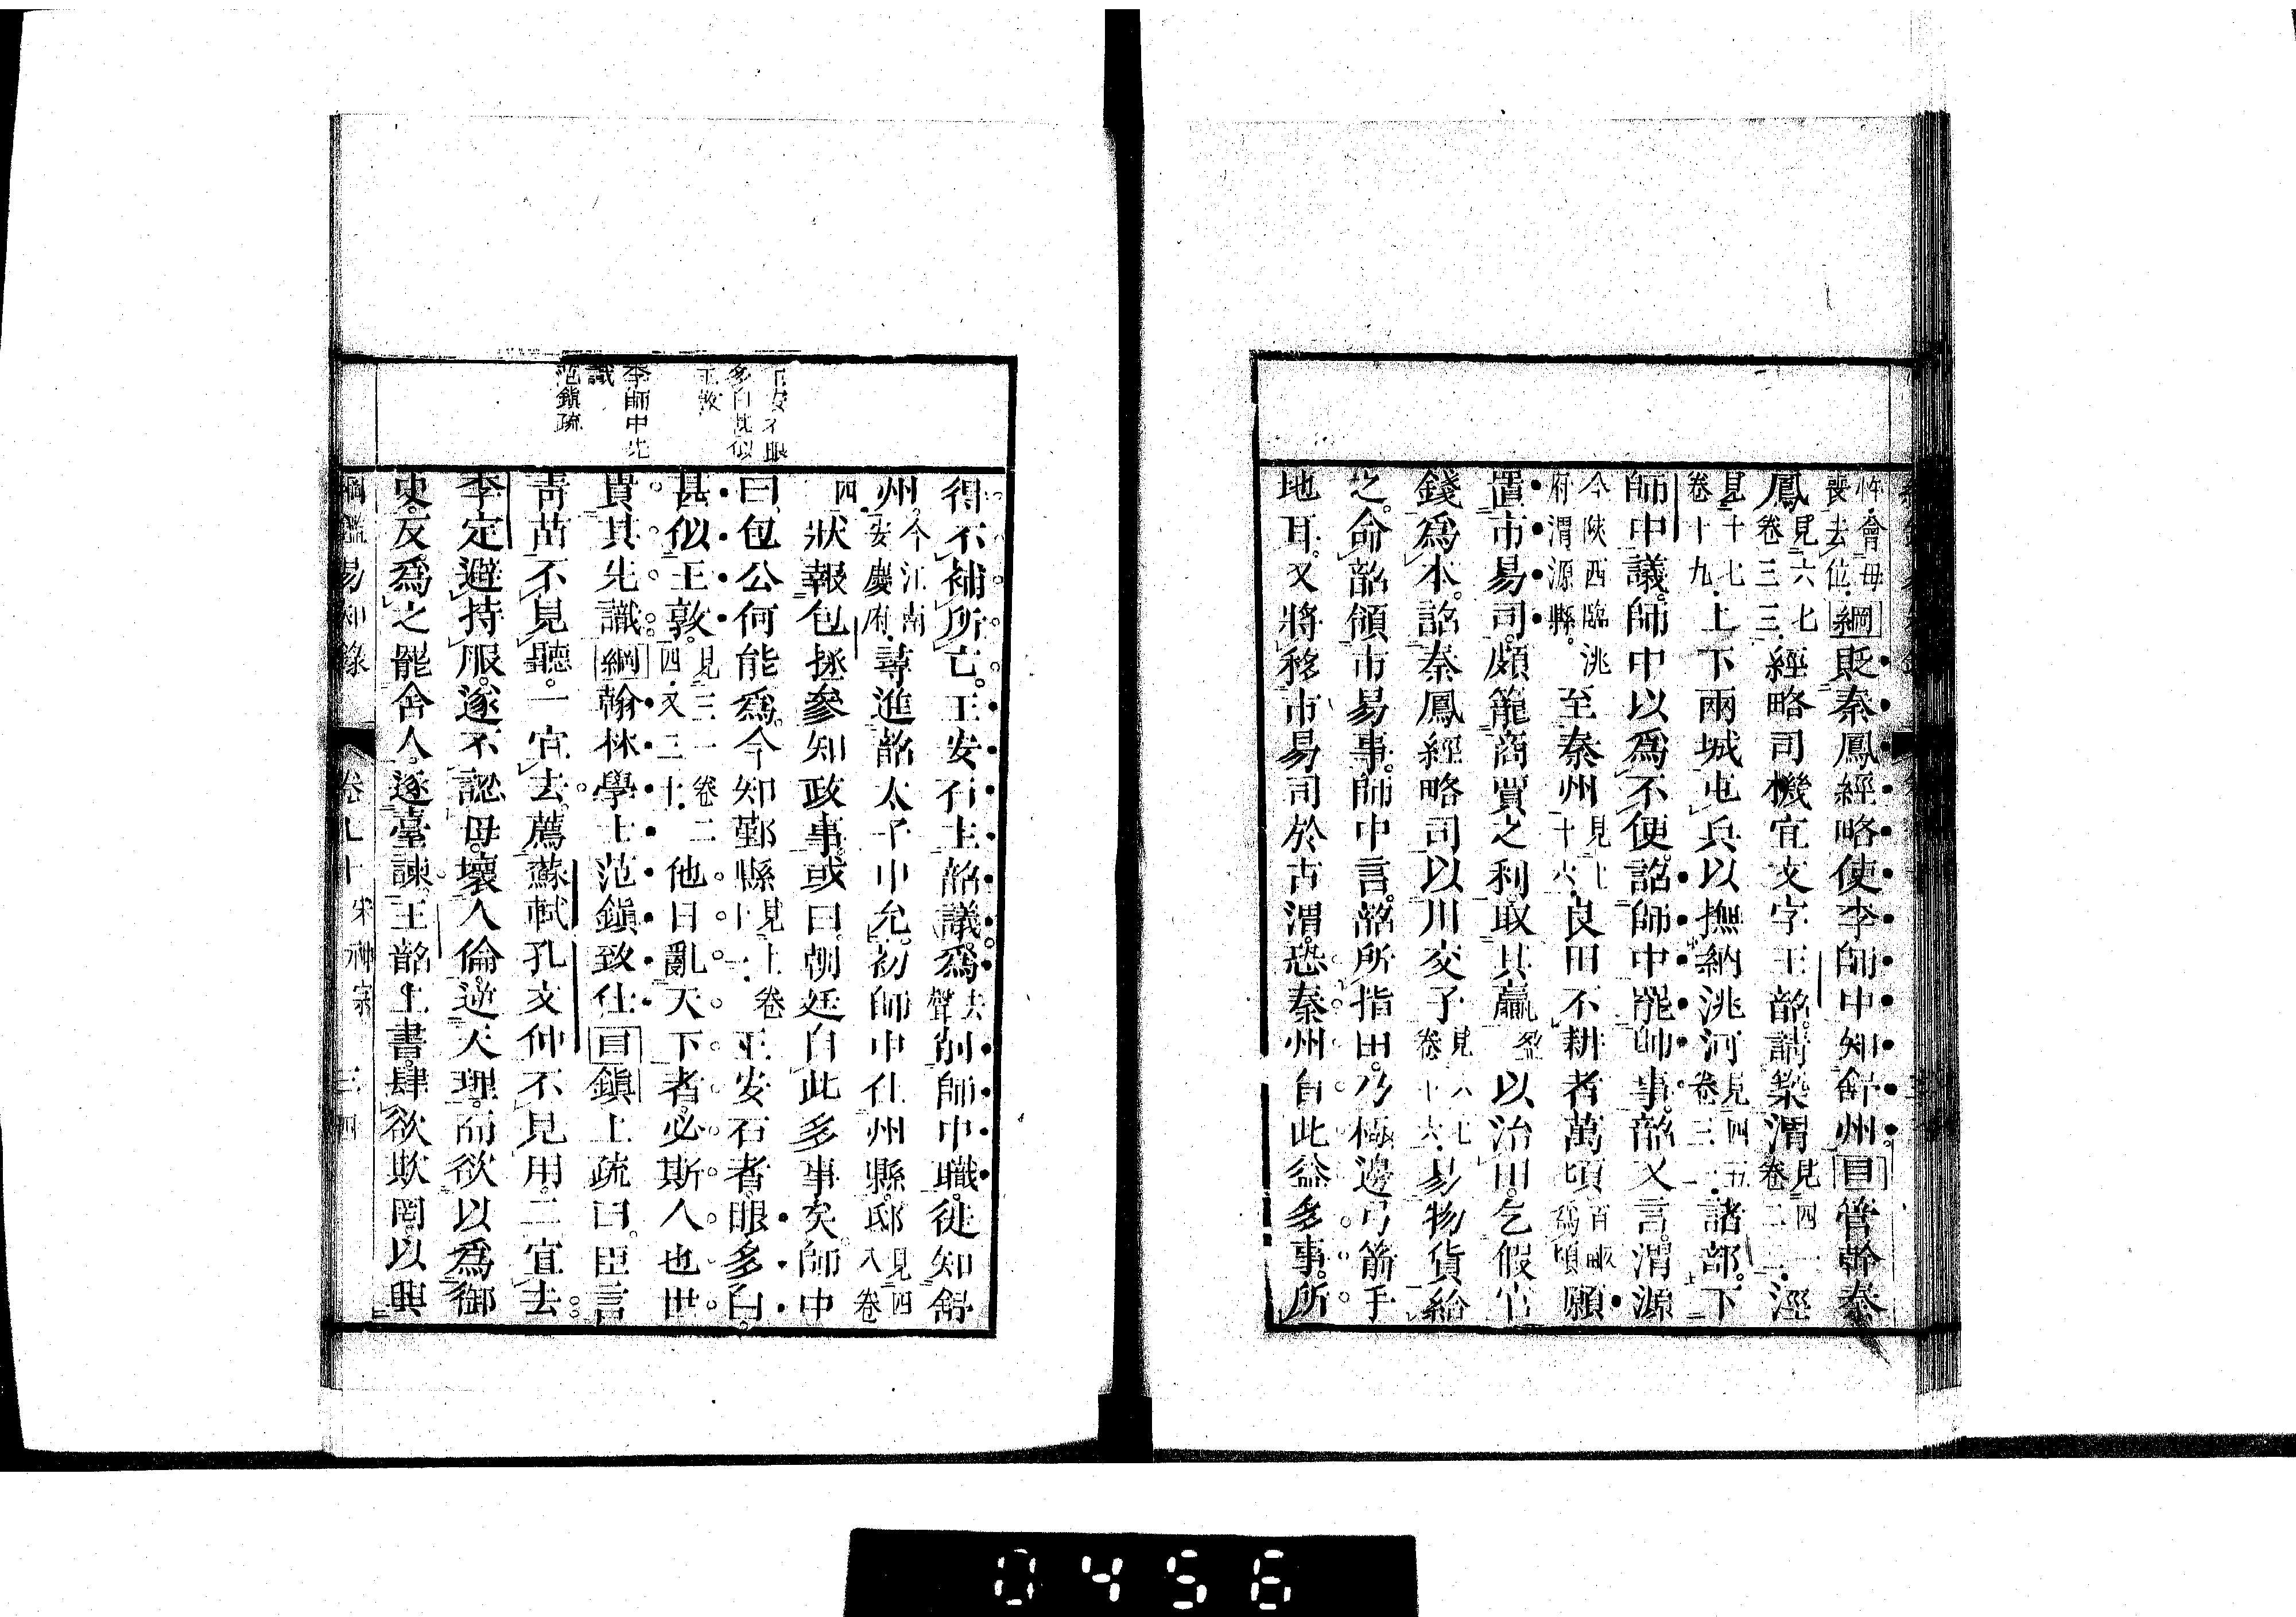 忤會母喪去位綱貶秦鳳經略使李師中知舒州目管幹秦
鳳見六七卷三三經略司機宜文字王韶請築渭見四一卷二二涇
見十七卷十九上下兩城屯兵以撫納洮河見四五卷三一諸部下
師中議師中以爲不便詔師中罷帥事韶又言渭源
今陝西臨洮府渭源縣至秦州見七十六良田不耕者萬頃百畝爲頃願
置市易司頗籠商賈之利取其贏盈以治田乞假官
錢爲本詔秦鳳經略司以川交子見六七卷十六易物貨給
之命韶領市易事師中言韶所指田乃極邊弓箭手
地耳又將移市易司於古渭恐秦州自此益多事所
得不補所亡王安石主韶議爲去聲削師中職徙知舒
州今江南安慶府尋進韶太子中允初師中仕州縣邸見四八卷
四狀報包拯參知政事或曰朝廷自此多事矣師中
曰包公何能爲今知鄞縣見上卷十一王安石者眼多白
甚似王敦見三一卷二四又三十他日亂天下者必斯人也世
貴其先識綱翰林學士范鎭致仕目鎭上疏曰臣言
靑苗不見聽一宜去薦蘇軾孔文仲不見用二宜去
李定避持服遂不認母壞人倫逆天理而欲以爲御
史反爲之罷舍人逐臺諫王韶上書肆欲欺罔以興
王安石眼
多白甚似
王敦
李師中先
識
范鎭疏
綱鑑易知錄 卷七十 宋神宗 三四
0456